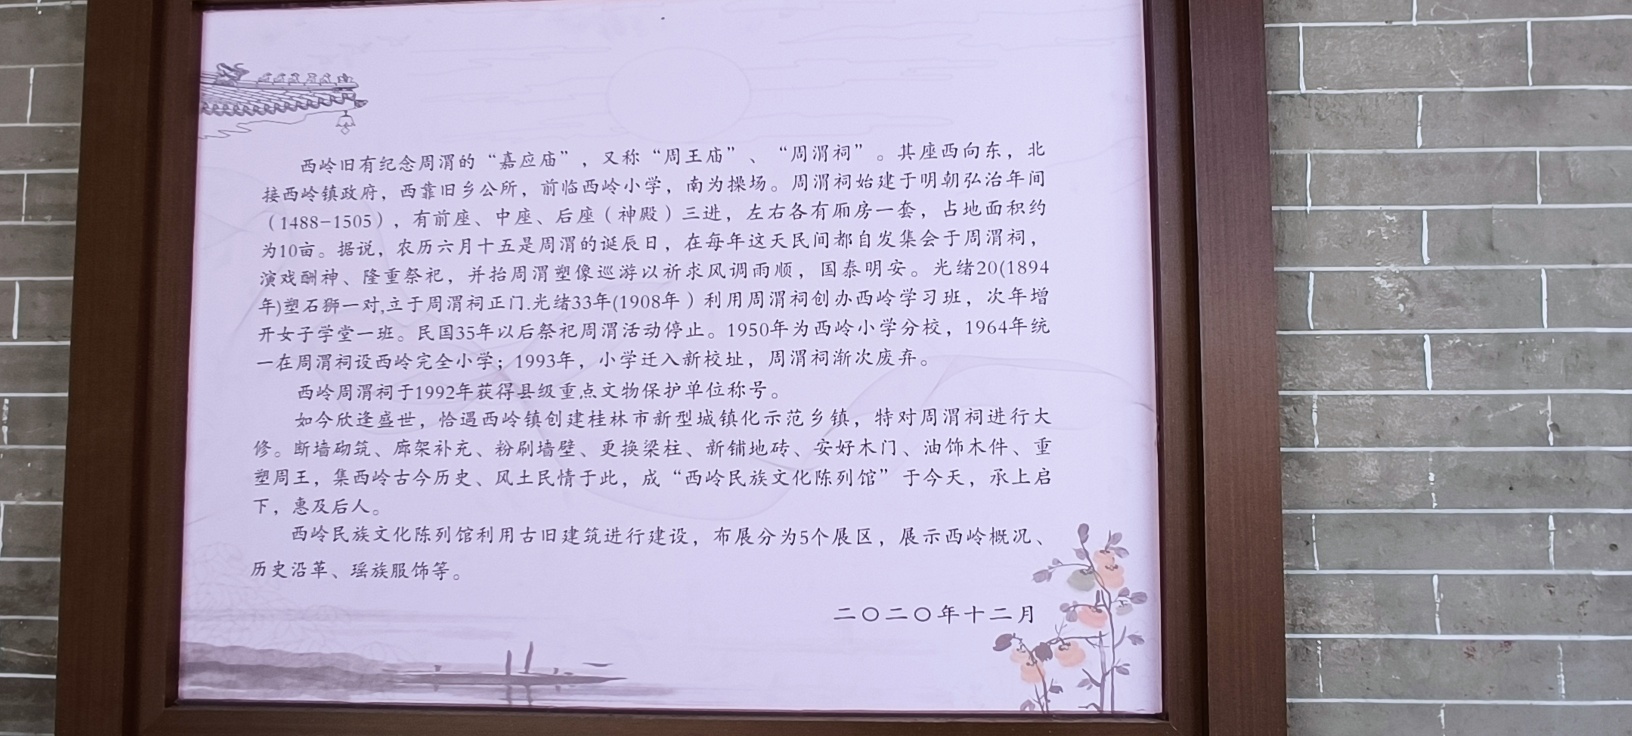 西岭旧有纪念周渭的“嘉应庙”，又称“周王庙”、“周渭祠”。其座西向东，北
接西岭镇政府，西靠旧乡公所，前临西岭小学，南为操场。周渭祠始建于明朝弘治年间
（1488-1505），有前座、中座、后座（神殿）三进，左右各有厢房一套，占地面积约
为10亩。据说，农历六月十五是周渭的诞辰日，在每年这天民间都自发集会于周渭祠，
演戏酬神、隆重祭祀，并抬周渭塑像巡游以祈求风调雨顺，国泰明安。光绪20(1894
年)塑石狮一对,立于周渭祠正门.光绪33年(1908年）利用周渭祠创办西岭学习班，次年增
开女子学堂一班。民国35年以后祭祀周渭活动停止。1950年为西岭小学分校，1964年统
一在周渭祠设西岭完全小学；1993年，小学迁入新校址，周渭祠渐次废弃。
西岭周渭祠于1992年获得县级重点文物保护单位称号。
如今欣逢盛世，恰遇西岭镇创建桂林市新型城镇化示范乡镇，特对周渭祠进行大
修。断墙砌筑、廊架补充、粉刷墙壁、更换梁柱、新铺地砖、安好木门、油饰木件、重
塑周王，集西岭古今历史、风土民情于此，成“西岭民族文化陈列馆”于今天，承上启
下，惠及后人。
西岭民族文化陈列馆利用古旧建筑进行建设，布展分为5个展区，展示西岭概况、
历史沿革、瑶族服饰等。
二〇二〇年十二月